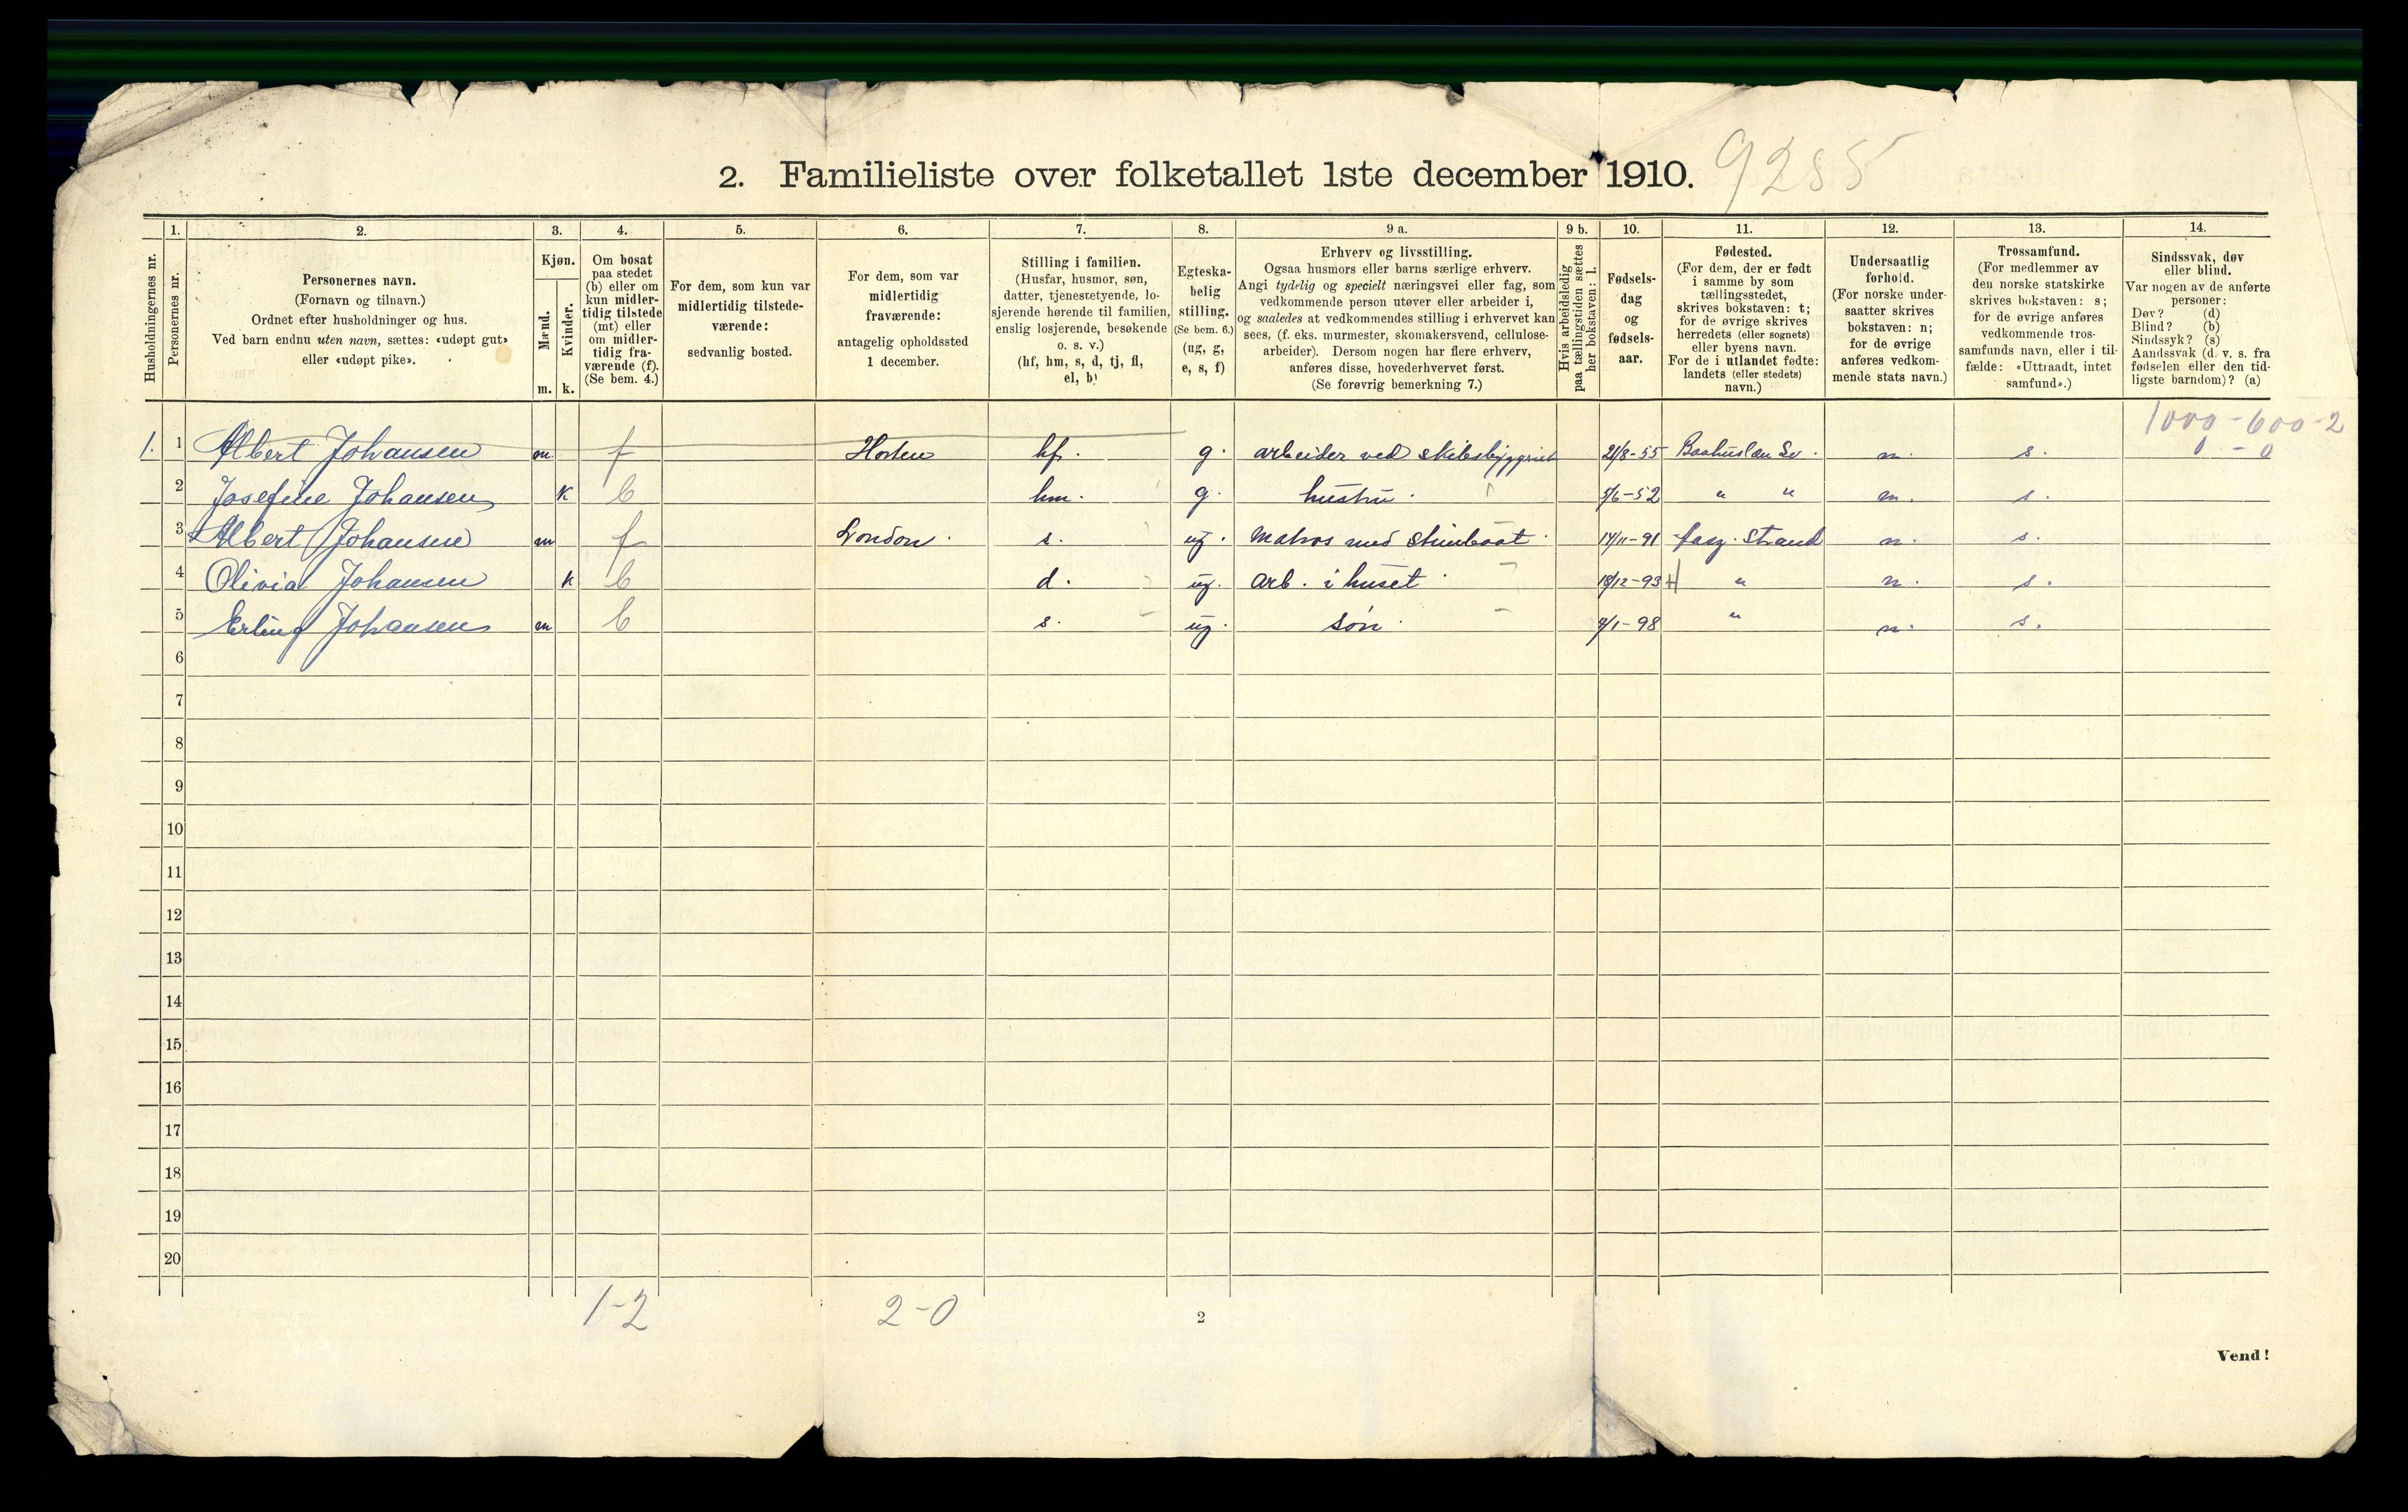 2. Familieliste over folketallet 1ste december 1910. 9285
Husholdningernes nr.
1.
Personernes nr.
2.
Personernes navn.
(Fornavn og tilnavn.)
Ordnet efter husholdninger og hus.
Ved barn endnu uten navn, sættes: «udøpt gut»
eller «udøpt pike».
3.
Kjøn.
Mænd.
m.
Kvinder.
k.
4.
Om bosat
paa stedet
(b) eller om
kun midler-
tidig tilstede
(mt) eller
om midler-
tidig fra-
værende (f).
(Se bem. 4.)
5.
For dem, som kun var
midlertidig tilstede-
værende:
sedvanlig bosted.
6.
For dem, som var
midlertidig
fraværende:
antagelig opholdssted
1 december.
7.
Stilling i familien.
(Husfar, husmor, søn,
datter, tjenestetyende, lo-
sjerende hørende til familien,
enslig losjerende, besøkende
o. s. v.)
(hf, hm, s, d, tj, fl,
el, b)
8.
Egteska-
belig
stilling.
(Se bem. 6.)
(ug, g,
e, s, f)
9 a.
Erhverv og livsstilling.
Ogsaa husmors eller barns særlige erhverv.
Angi tydelig og specielt næringsvei eller fag, som
vedkommende person utøver eller arbeider i,
og saaledes at vedkommendes stilling i erhvervet kan
sees, (f. eks. murmester, skomakersvend, cellulose-
arbeider). Dersom nogen har flere erhverv,
anføres disse, hovederhvervet først.
(Se forøvrig bemerkning 7.)
9 b.
Hvis arbeidsledig
paa tællingstiden sættes
her bokstaven: l.
10.
Fødsels-
dag
og
fødsels-
aar.
11.
Fødested.
(For dem, der er født
i samme by som
tællingsstedet,
skrives bokstaven: t;
for de øvrige skrives
herredets (eller sognets)
eller byens navn.
For de i utlandet fødte:
landets (eller stedets)
navn.)
12.
Undersaatlig
forhold.
(For norske under-
saatter skrives
bokstaven: n;
for de øvrige
anføres vedkom-
mende stats navn.)
13.
Trossamfund.
(For medlemmer av
den norske statskirke
skrives bokstaven: s;
for de øvrige anføres
vedkommende tros-
samfunds navn, eller i til-
fælde: «Uttraadt, intet
samfund».)
14.
Sindssvak, døv
eller blind.
Var nogen av de anførte
personer:
Døv? (d)
Blind? (b)
Sindssyk? (s)
Aandssvak (d. v. s. fra
fødselen eller den tid-
ligste barndom)? (a)
1000-600-2
1. 1 Albert Johansen m f Horten hf. g. arbeider ved skibsbyggriet 21/8-55 Baahuslen Sv. n. s. 0 - 0
2 Josefine Johansen k b hm. g. hustru. 5/6-52 " " n. s.
3 Albert Johansen m f London. s. ug. Matros med stimbaat. 14/11-91 Aasg. Strand n. s.
4 Olivia Johansen k b d. ug. arb. i huset. 18/12-93 " n. s.
5 Erling Johansen m b s. ug. søn. 9/1-98 " n. s.
6
7
8
9
10
11
12
13
14
15
16
17
18
19
20
1-2 2-0
2
Vend!